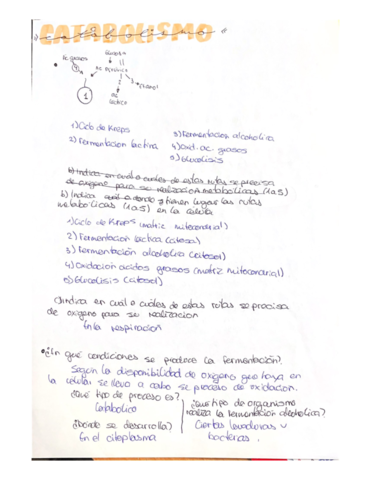 CATABOLISMO
catabolismo
Glucosa
Ac grasos
ac pirúvico
4
5
2
3
Etanol
1
ac
láctico
1) Ciclo de Kreps
3) Fermentacion alcoholica
2) Fermentacion lactica
4) Oxid. ac. grasos
5) Glucolisis
b) Indica en cual o cuales de estas rutas se precisa
de oxigeno para su realización metabolicas (1 a 5)
b) Indica donde tienen lugar las rutas
metabolicas (1 a 5) en la celula
1) Ciclo de Kreps (matriz mitocondrial)
2) Fermentacion lactica (citosol)
3) Fermentación alcoholica (citosol)
4) Oxidacion acidos grasos (matriz mitocondrial)
5) Glucolisis (citosol)
c) Indica en cual o cuales de estas rutas se precisa
de oxigeno para su realizacion
En la respiracion
• ¿En qué condiciones se produce la fermentación?
Según la disponibilidad de oxigeno que haya en
la celula, se lleva a cabo su proceso de oxidacion.
¿Qué tipo de proceso es?
Catabolico
¿Dónde se desarrolla?
En el citoplasma
¿Qué tipo de organismo
realiza la fermentación alcoholica?
Ciertas levaduras y
bacterias.